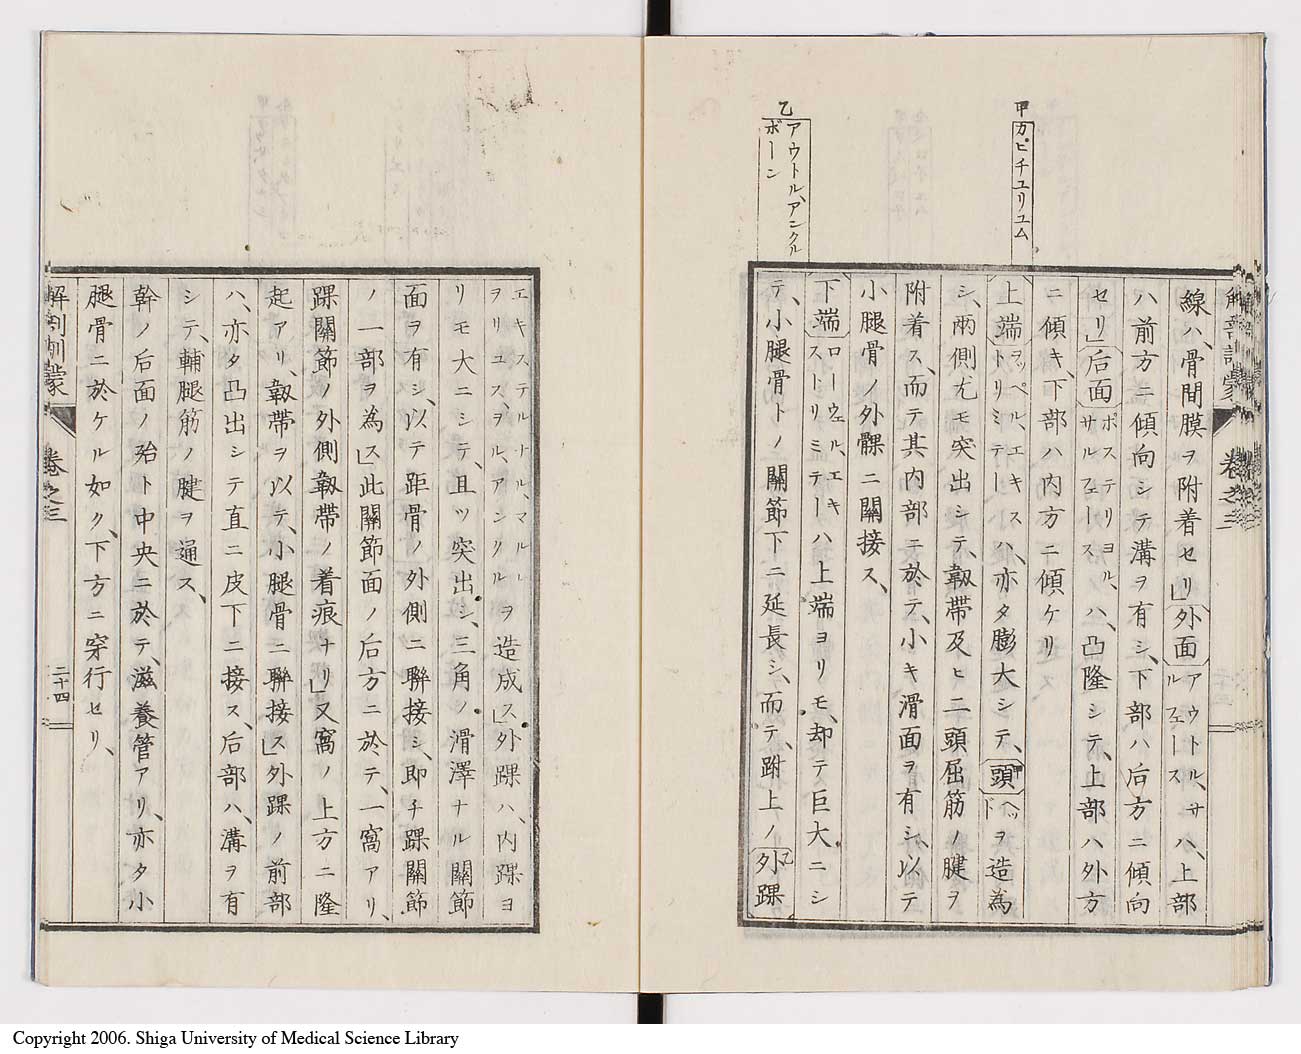 甲カピチユリユム
乙アウトル、アンクル
ボーン
線ハ、骨間膜ヲ附着セリ」外面アウトル、サルフェースハ、上部
ハ前方ニ傾向シテ溝ヲ有シ、下部ハ后方ニ傾向
セリ」后面ポステリヨル、サルフェースハ、凸隆シテ、上部ハ外方
ニ傾キ、下部ハ内方ニ傾ケリ
上端ヲッペル、エキストリミテーハ、亦タ膨大シテ、頭ヘッドヲ造為
シ、兩側尤モ突出シテ、韌帶及ヒ二頭屈筋ノ腱ヲ
附着ス、而テ其内部ニ於テ、小キ滑面ヲ有シ、以テ
小腿骨ノ外髁ニ關接ス、
下端ローウェル、エキストリミテーハ上端ヨリモ、却テ巨大ニシ
テ、小腿骨トノ關節下ニ延長シ、而テ、跗上ノ外踝
エキステルナル、マルレヲリユス、ヲルアンクルヲ造成ス」外踝ハ、内踝ヨ
リモ大ニシテ、且ツ突出シ、三角ノ滑澤ナル關節
面ヲ有シ、以テ距骨ノ外側ニ聯接シ、即チ踝關節
ノ一部ヲ為ス」此關節面ノ后方ニ於テ、一窩アリ、
踝關節ノ外側韌帶ノ着痕ナリ」又窩ノ上方ニ隆
起アリ、韌帶ヲ以テ、小腿骨ニ聯接ス」外踝ノ前部
ハ、亦タ凸出シテ直ニ皮下ニ接ス、后部ハ、溝ヲ有
シテ、輔腿筋ノ腱ヲ通ス、
幹ノ后面ノ殆ト中央ニ於テ、滋養管アリ、亦タ小
腿骨ニ於ケル如ク、下方ニ穿行セリ、
解剖訓蒙 卷之三 二十四
Copyright 2006. Shiga University of Medical Science Library